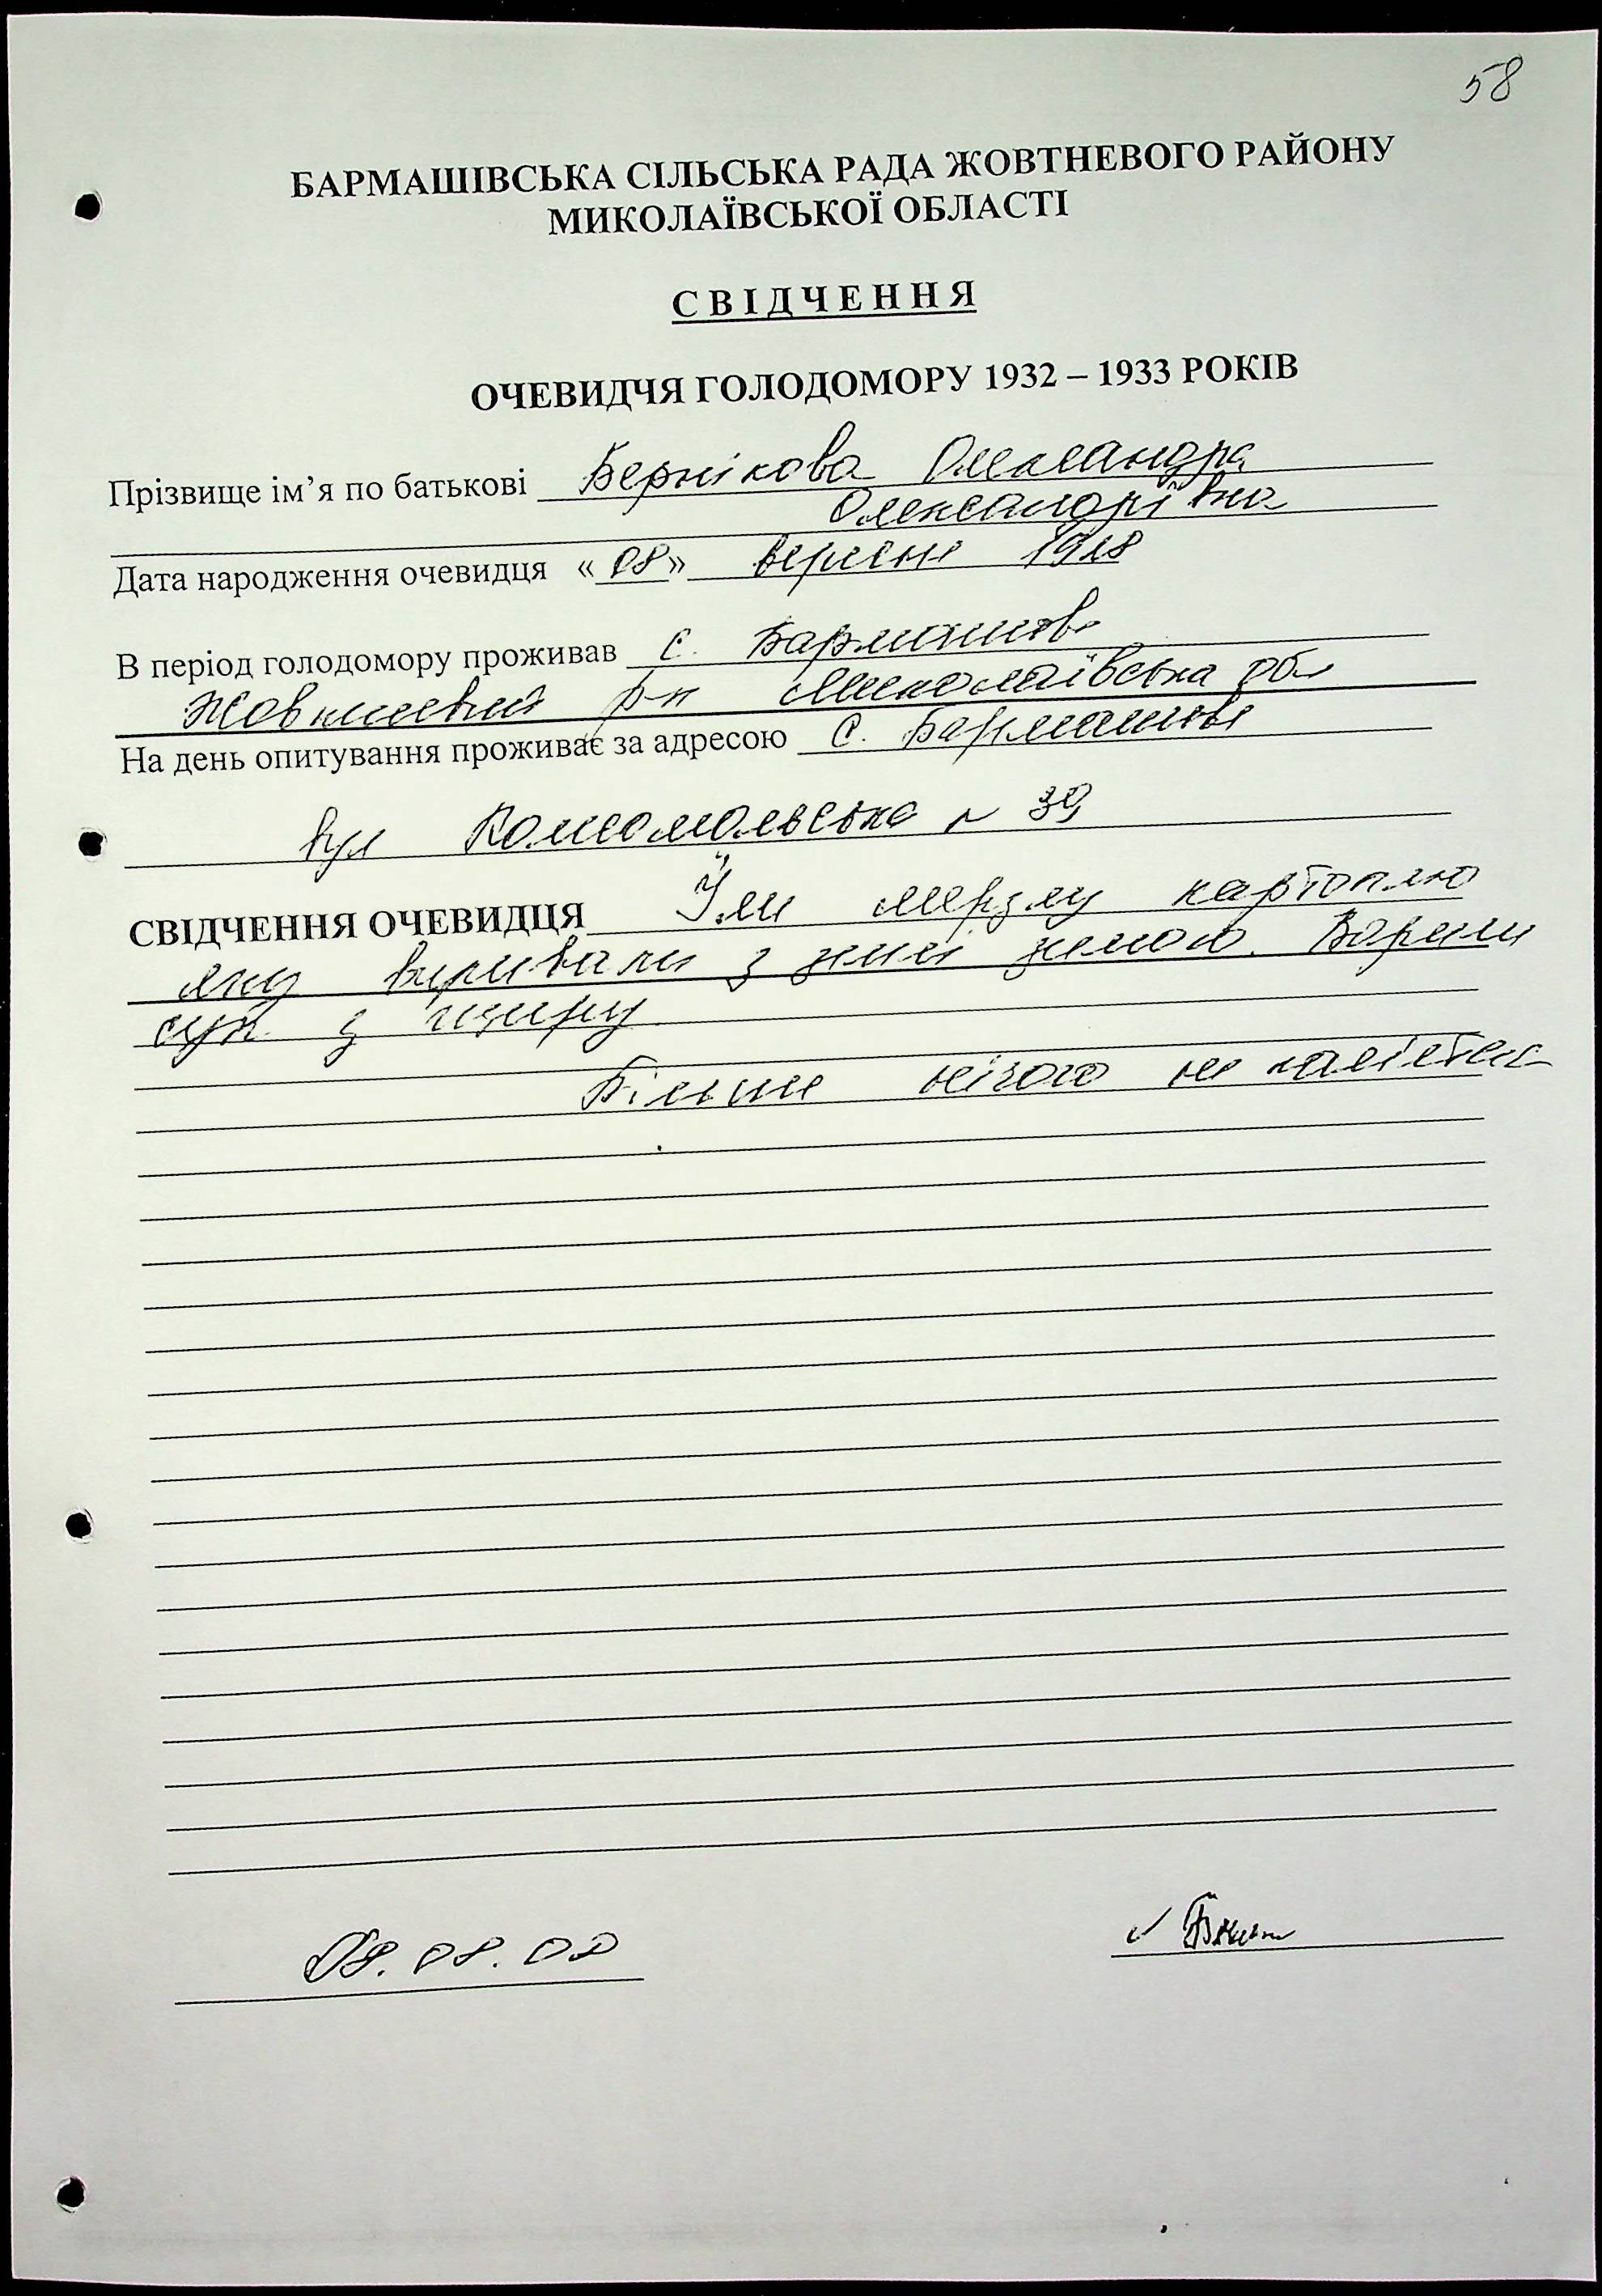 58
БАРМАШІВСЬКА СІЛЬСЬКА РАДА ЖОВТНЕВОГО РАЙОНУ
МИКОЛАЇВСЬКОЇ ОБЛАСТІ
СВІДЧЕННЯ
ОЧЕВИДЧЯ ГОЛОДОМОРУ 1932 – 1933 РОКІВ
Прізвище ім’я по батькові Бернікова Олександра
Олександрівна
Дата народження очевидця «08» вересня 1928
В період голодомору проживав с. Бармашове
Жовтневий р-н Миколаївська обл
На день опитування проживає за адресою с. Бармашове
вул Комсомольська № 39
СВІДЧЕННЯ ОЧЕВИДЦЯ Їли мерзлу картоплю
яку виривали з землі зимою. Варили
суп з щиру.
Більше нічого не
08.08.